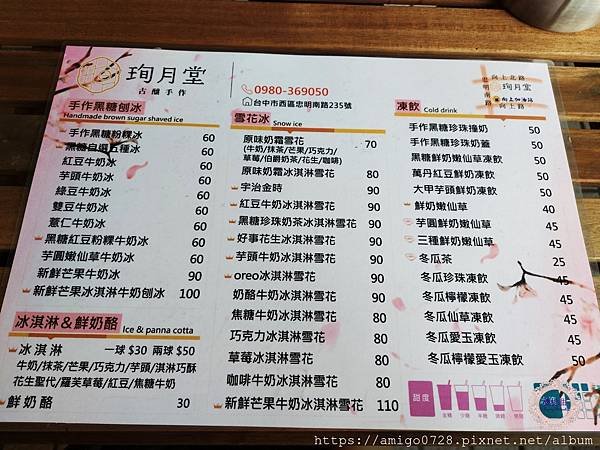 珣月堂
古釀手作
0980-369050
台中市西區忠明南路235號
向上北路
忠明南路
珣月堂
向上加油站
向上路
手作黑糖刨冰
Handmade brown sugar shaved ice
手作黑糖粉粿冰 60
黑糖自選五種冰 60
紅豆牛奶冰 60
芋頭牛奶冰 60
綠豆牛奶冰 60
雙豆牛奶冰 60
薏仁牛奶冰 60
黑糖紅豆粉粿牛奶冰 60
芋圓嫩仙草牛奶冰 60
新鮮芒果牛奶冰 90
新鮮芒果冰淇淋牛奶刨冰 100
冰淇淋&鮮奶酪
Ice & panna cotta
冰淇淋 一球 $30 兩球 $50
牛奶/抹茶/芒果/巧克力/芋頭/淇淋巧酥
花生聖代/蘿芙草莓/紅豆/焦糖牛奶
鮮奶酪 30
雪花冰
Snow ice
原味奶霜雪花 70
(牛奶/抹茶/芒果/巧克力/
草莓/伯爵奶茶/花生/咖啡)
原味奶霜冰淇淋雪花 80
宇治金時 90
紅豆牛奶冰淇淋雪花 90
黑糖珍珠奶茶冰淇淋雪花 90
好事花生冰淇淋雪花 90
芋頭牛奶冰淇淋雪花 90
oreo冰淇淋雪花 90
奶酪牛奶冰淇淋雪花 90
焦糖牛奶冰淇淋雪花 80
巧克力冰淇淋雪花 80
草莓冰淇淋雪花 80
咖啡牛奶冰淇淋雪花 80
新鮮芒果牛奶冰淇淋雪花 110
凍飲
Cold drink
手作黑糖珍珠撞奶 50
手作黑糖珍珠奶蓋 50
黑糖鮮奶嫩仙草凍飲 50
萬丹紅豆鮮奶凍飲 50
大甲芋頭鮮奶凍飲 50
鮮奶嫩仙草 40
芋圓鮮奶嫩仙草 45
三種鮮奶嫩仙草 45
冬瓜茶 25
冬瓜珍珠凍飲 45
冬瓜檸檬凍飲 45
冬瓜仙草凍飲 45
冬瓜愛玉凍飲 45
冬瓜檸檬愛玉凍飲 50
甜度
全糖 少糖 半糖 微糖 無糖
https://amigo0728.pixnet.net/album